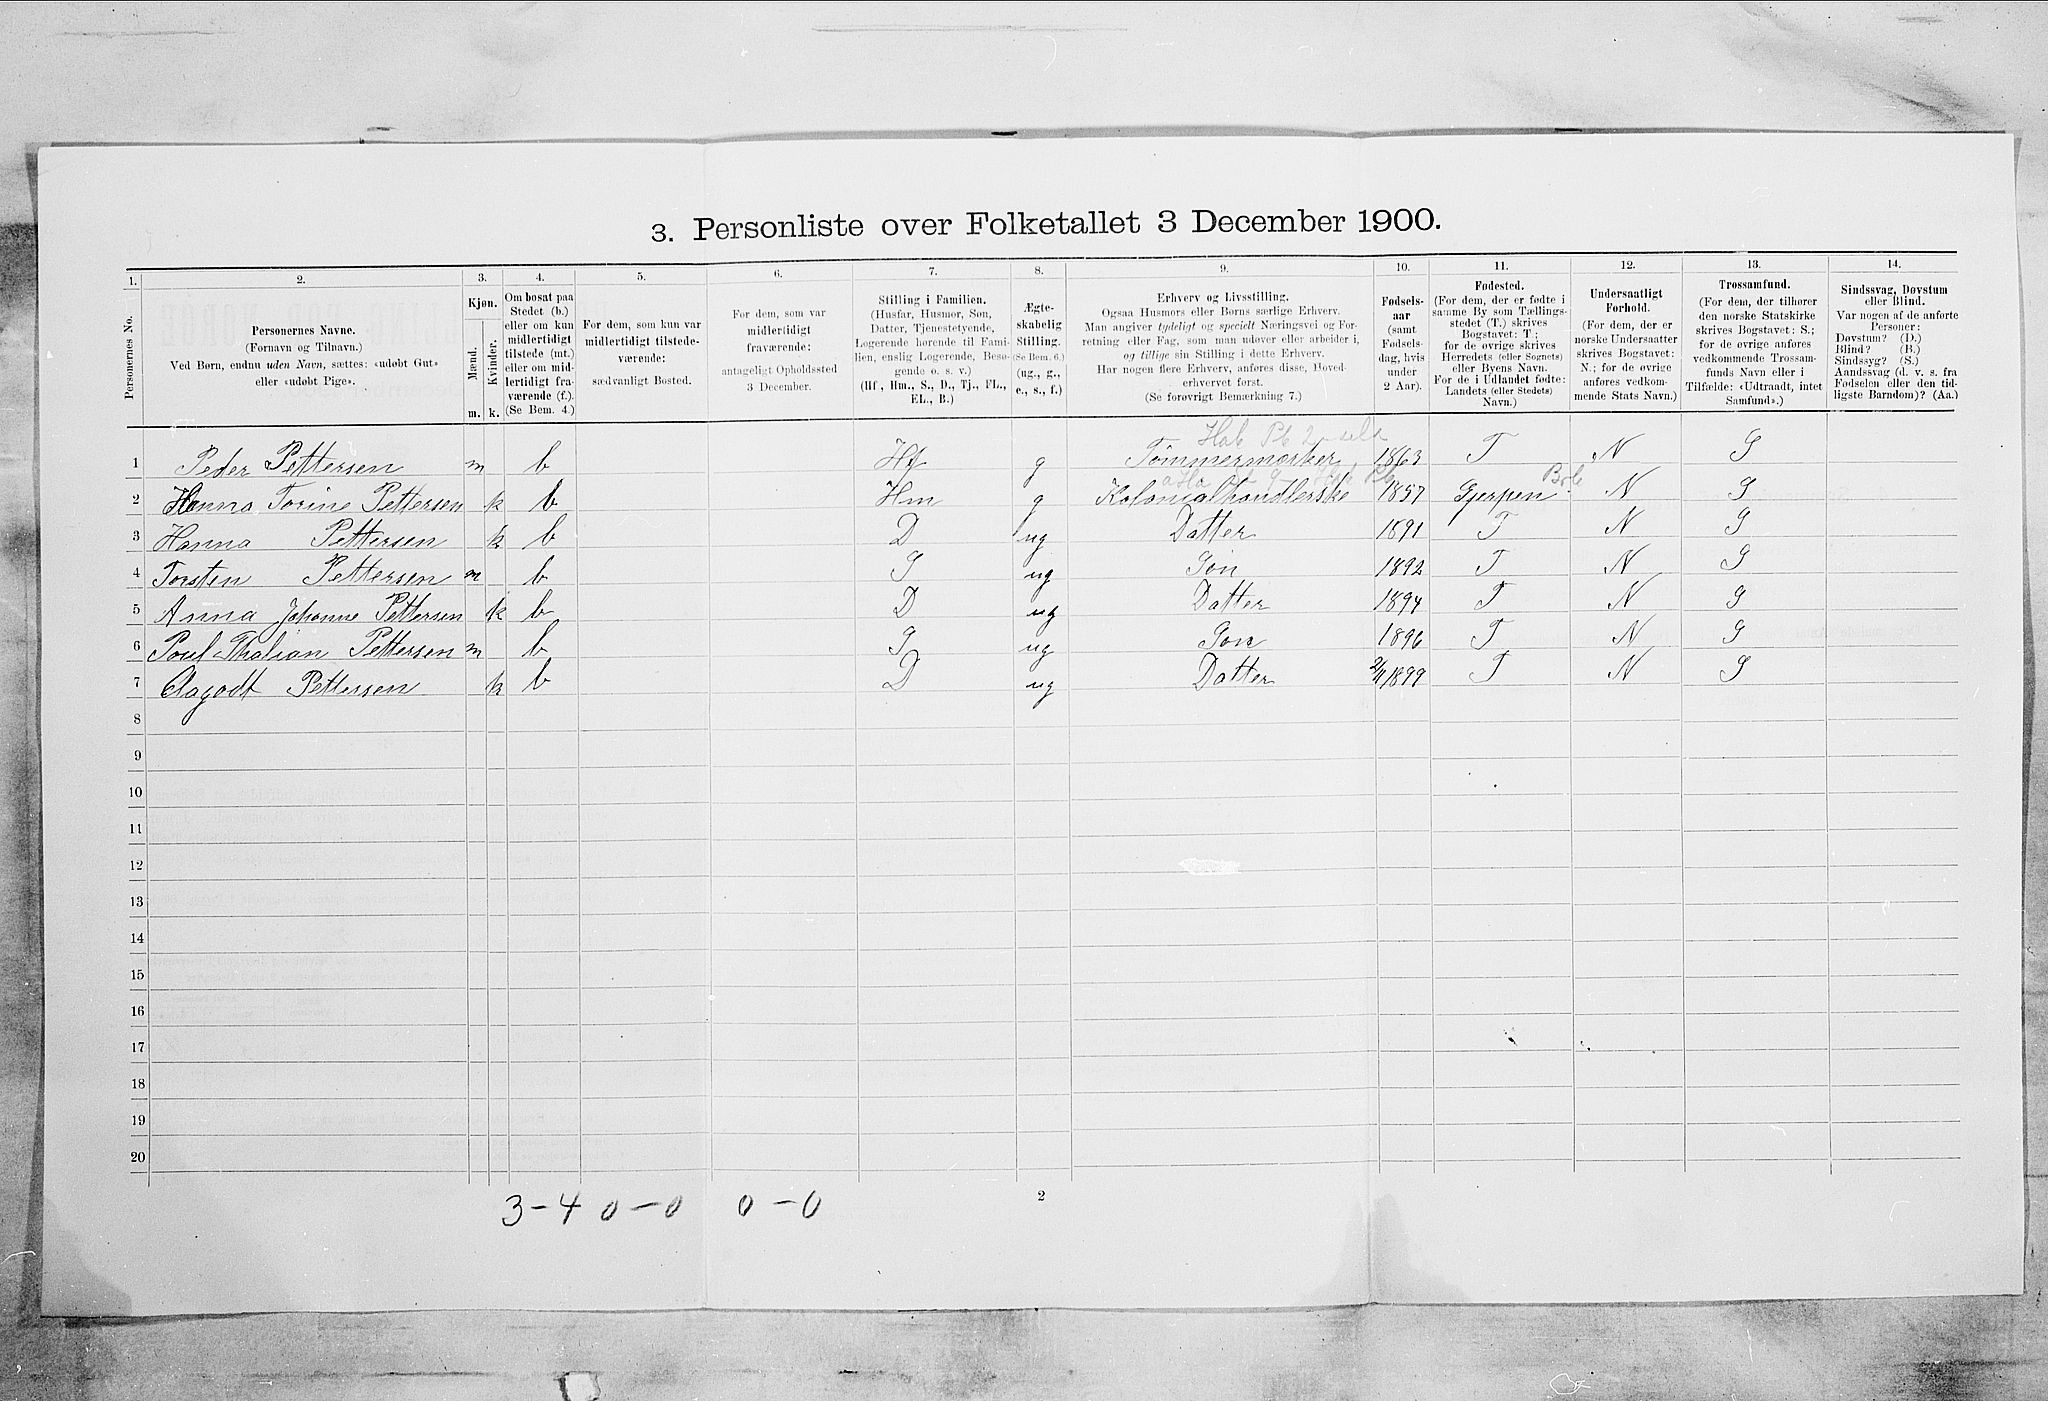 3. Personliste over Folketallet 3 December 1900.
1. 2. 3. 4. 5. 6. 7. 8. 9. 10. 11. 12. 13. 14.
Personernes No.
Personernes Navne.
(Fornavn og Tilnavn.)
Ved Børn, endnu uden Navn, sættes: «udøbt Gut»
eller «udøbt Pige».
Kjøn.
Mænd.
Kvinder.
m. k.
Om bosat paa
Stedet (b.)
eller om kun
midlertidigt
tilstede (mt.)
eller om mid-
lertidigt fra-
værende (f.).
(Se Bem. 4.)
For dem, som kun var
midlertidigt tilstede-
værende:
sædvanligt Bosted.
For dem, som var
midlertidigt
fraværende:
antageligt Opholdssted
3 December.
Stilling i Familien.
(Husfar, Husmor, Søn,
Datter, Tjenestetyende,
Logerende hørende til Fami-
lien, enslig Logerende, Besø-
gende o. s. v.)
(Hf., Hm., S., D., Tj., FL.,
EL., B.)
Ægte-
skabelig
Stilling.
(Se Bem. 6.)
(ug., g.,
e., s., f.)
Erhverv og Livsstilling.
Ogsaa Husmors eller Børns særlige Erhverv.
Man angiver tydeligt og specielt Næringsvei og For-
retning eller Fag, som man udøver eller arbeider i,
og tillige sin Stilling i dette Erhverv.
Har nogen flere Erhverv, anføres disse, Hoved-
erhvervet først.
(Se forøvrigt Bemærkning 7.)
Fødsels-
aar
(samt
Fødsels-
dag, hvis
under
2 Aar).
Fødested.
(For dem, der er fødte i
samme By som Tællings-
stedet (T.) skrives
Bogstavet: T.;
for de øvrige skrives
Herredets (eller Sognets)
eller Byens Navn.
For de i Udlandet fødte:
Landets (eller Stedets)
Navn.)
Undersaatligt
Forhold.
(For dem, der er
norske Undersaatter
skrives Bogstavet:
N.; for de øvrige
anføres vedkom-
mende Stats Navn.)
Trossamfund.
(For dem, der tilhører
den norske Statskirke
skrives Bogstavet: S.;
for de øvrige anføres
vedkommende Trossam-
funds Navn eller i
Tilfælde: «Udtraadt, intet
Samfund».)
Sindssvag, Døvstum
eller Blind.
Var nogen af de anførte
Personer:
Døvstum? (D.)
Blind? (B.)
Sindssyg? (S.)
Aandssvag (d. v. s. fra
Fødselen eller den tid-
ligste Barndom)? (Aa.)
1 Peder Pettersen m b Hf g Tømmermerker 1863 T N S
2 Hanna Torine Pettersen k b Hm g Kolonialhandlerske 1857 Gjerpen N S
3 Hanna Pettersen k b D ug Datter 1891 T N S
4 Torsten Pettersen m b S ug Søn 1892 T N S
5 Anna Johanne Pettersen k b D ug Datter 1894 T N S
6 Poul Thalian Pettersen m b S ug Søn 1896 T N S
7 Aagodt Pettersen k b D ug Datter 2/11 1899 T N S
8
9
10
11
12
13
14
15
16
17
18
19
20
3-4 0-0 0-0
2